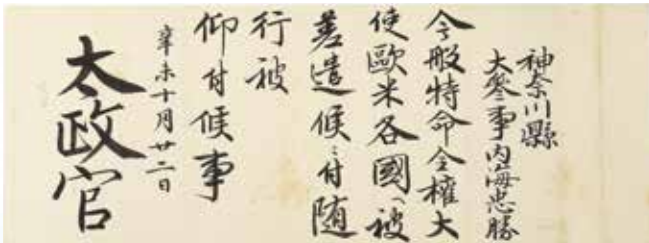 神奈川縣
大參事內海忠勝
今般特命全權大
使歐米各國へ被
差遣候ニ付隨
行被
仰付候事
辛未十月廿二日
太政官